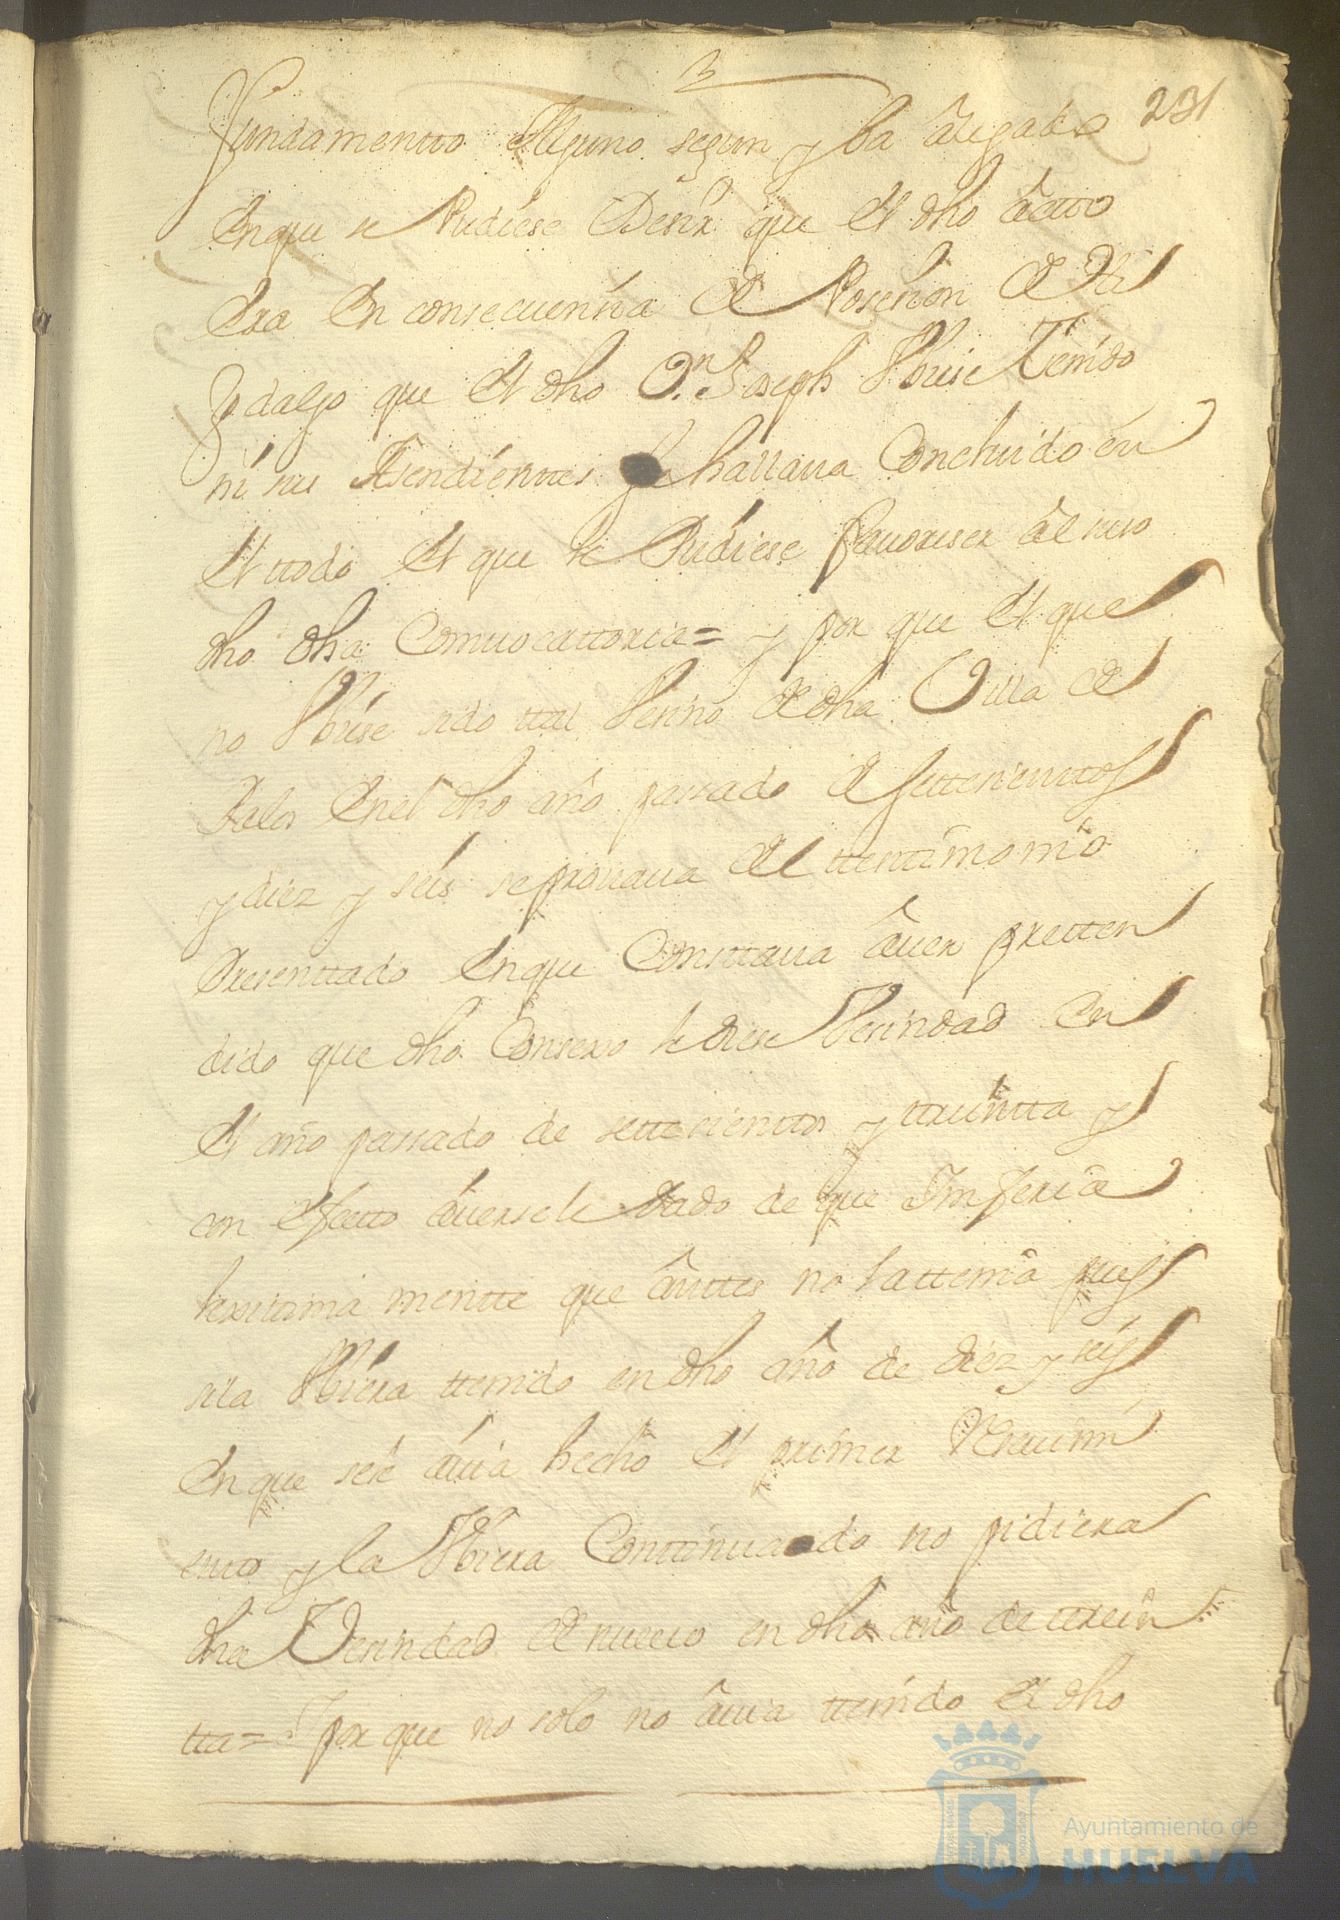 3
231
fundamentto Alguno segun y ba âlegado
Enque se Pudiese Desir que El dho âctto
Era En consecuensia de Posesion de
Ydalgo que El dho Dn Joseph Vbiese Tenido
ni sus Asendienttes hallaua Concluido en
El ttodo El que le Pudiese fauoreser âl suio
dho dha Comuocattoria = y por que El que
no Vbiese sido ttal Vesino de dha Villa de
Palos Enel dho año passado de settesienttos
y diez y seis se prouaua del ttesttimonio
Presenttado Enque Consttaua âuer pretten
dido que dho Consexo le diese Vesindad En
El año passado de settesienttos y ttreintta y
con Efectto âuersele dado de que Inferia
lexitima mentte que ânttes no la ttenia pues
si la Vbiera ttenido en dho año de diez y seis
En que sele âuia hecho El primer Resiuimi
entto y la Vbiera Continuado no pidiera
dha Vesindad de nueuo en dho año de ttrein
tta = Y por que no solo no âuia ttenido El dho
Ayuntamiento de
HUELVA